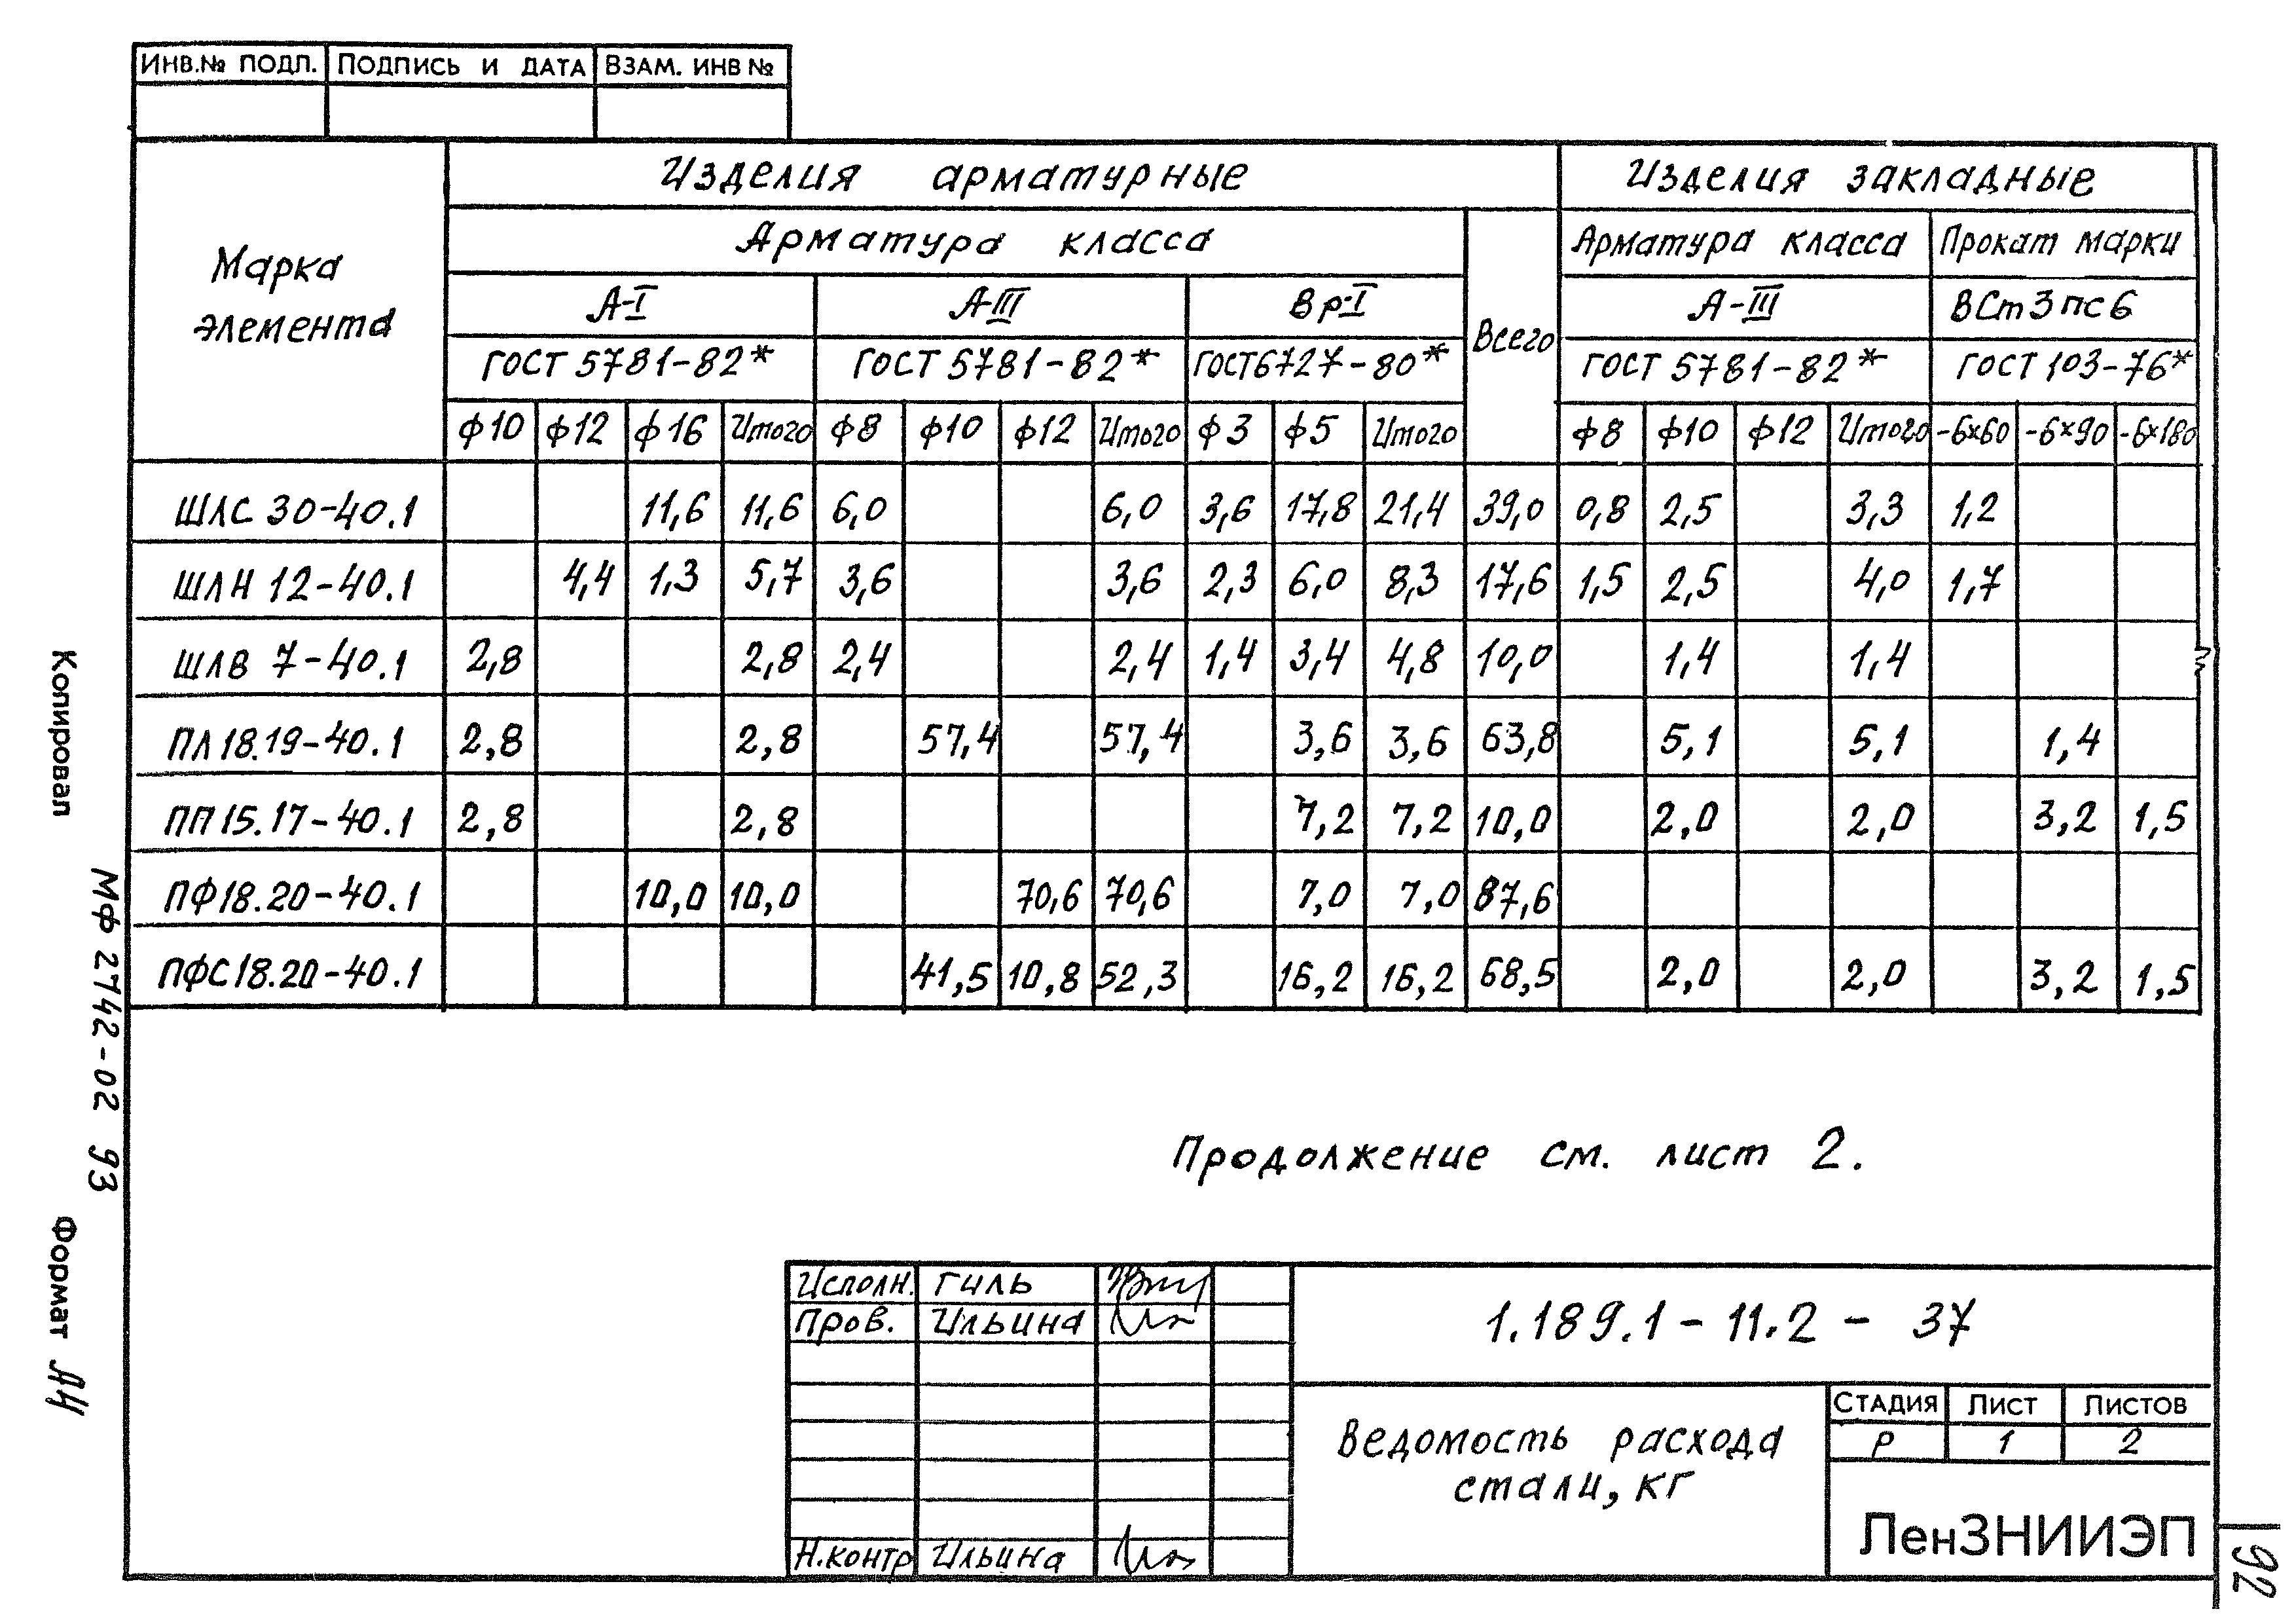 Инв.№ подл. Подпись и дата Взам. инв №
Изделия арматурные Изделия закладные
Марка элемента
Арматура класса Всего Арматура класса Прокат марки
А-I А-III Вр-I А-III ВСт3пс6
ГОСТ 5781-82* ГОСТ 5781-82* ГОСТ 6727-80* ГОСТ 5781-82* ГОСТ 103-76*
ф10 ф12 ф16 Итого ф8 ф10 ф12 Итого ф3 ф5 Итого ф8 ф10 ф12 Итого -6×60 -6×90 -6×180
ШЛС 30-40.1 11,6 11,6 6,0 6,0 3,6 17,8 21,4 39,0 0,8 2,5 3,3 1,2
ШЛН 12-40.1 4,4 1,3 5,7 3,6 3,6 2,3 6,0 8,3 17,6 1,5 2,5 4,0 1,7
ШЛВ 7-40.1 2,8 2,8 2,4 2,4 1,4 3,4 4,8 10,0 1,4 1,4
ПЛ18.19-40.1 2,8 2,8 57,4 57,4 3,6 3,6 63,8 5,1 5,1 1,4
ПП15.17-40.1 2,8 2,8 7,2 7,2 10,0 2,0 2,0 3,2 1,5
ПФ18.20-40.1 10,0 10,0 70,6 70,6 7,0 7,0 87,6
ПФС18.20-40.1 41,5 10,8 52,3 16,2 16,2 68,5 2,0 2,0 3,2 1,5
Продолжение см. лист 2.
Исполн. Гиль
Пров. Ильина
Н.контр Ильина
1.189.1-11.2 - 37
Ведомость расхода
стали, кг
Стадия Лист Листов
Р 1 2
ЛенЗНИИЭП
Копировал
МФ 2742-02 93
Формат А4
92